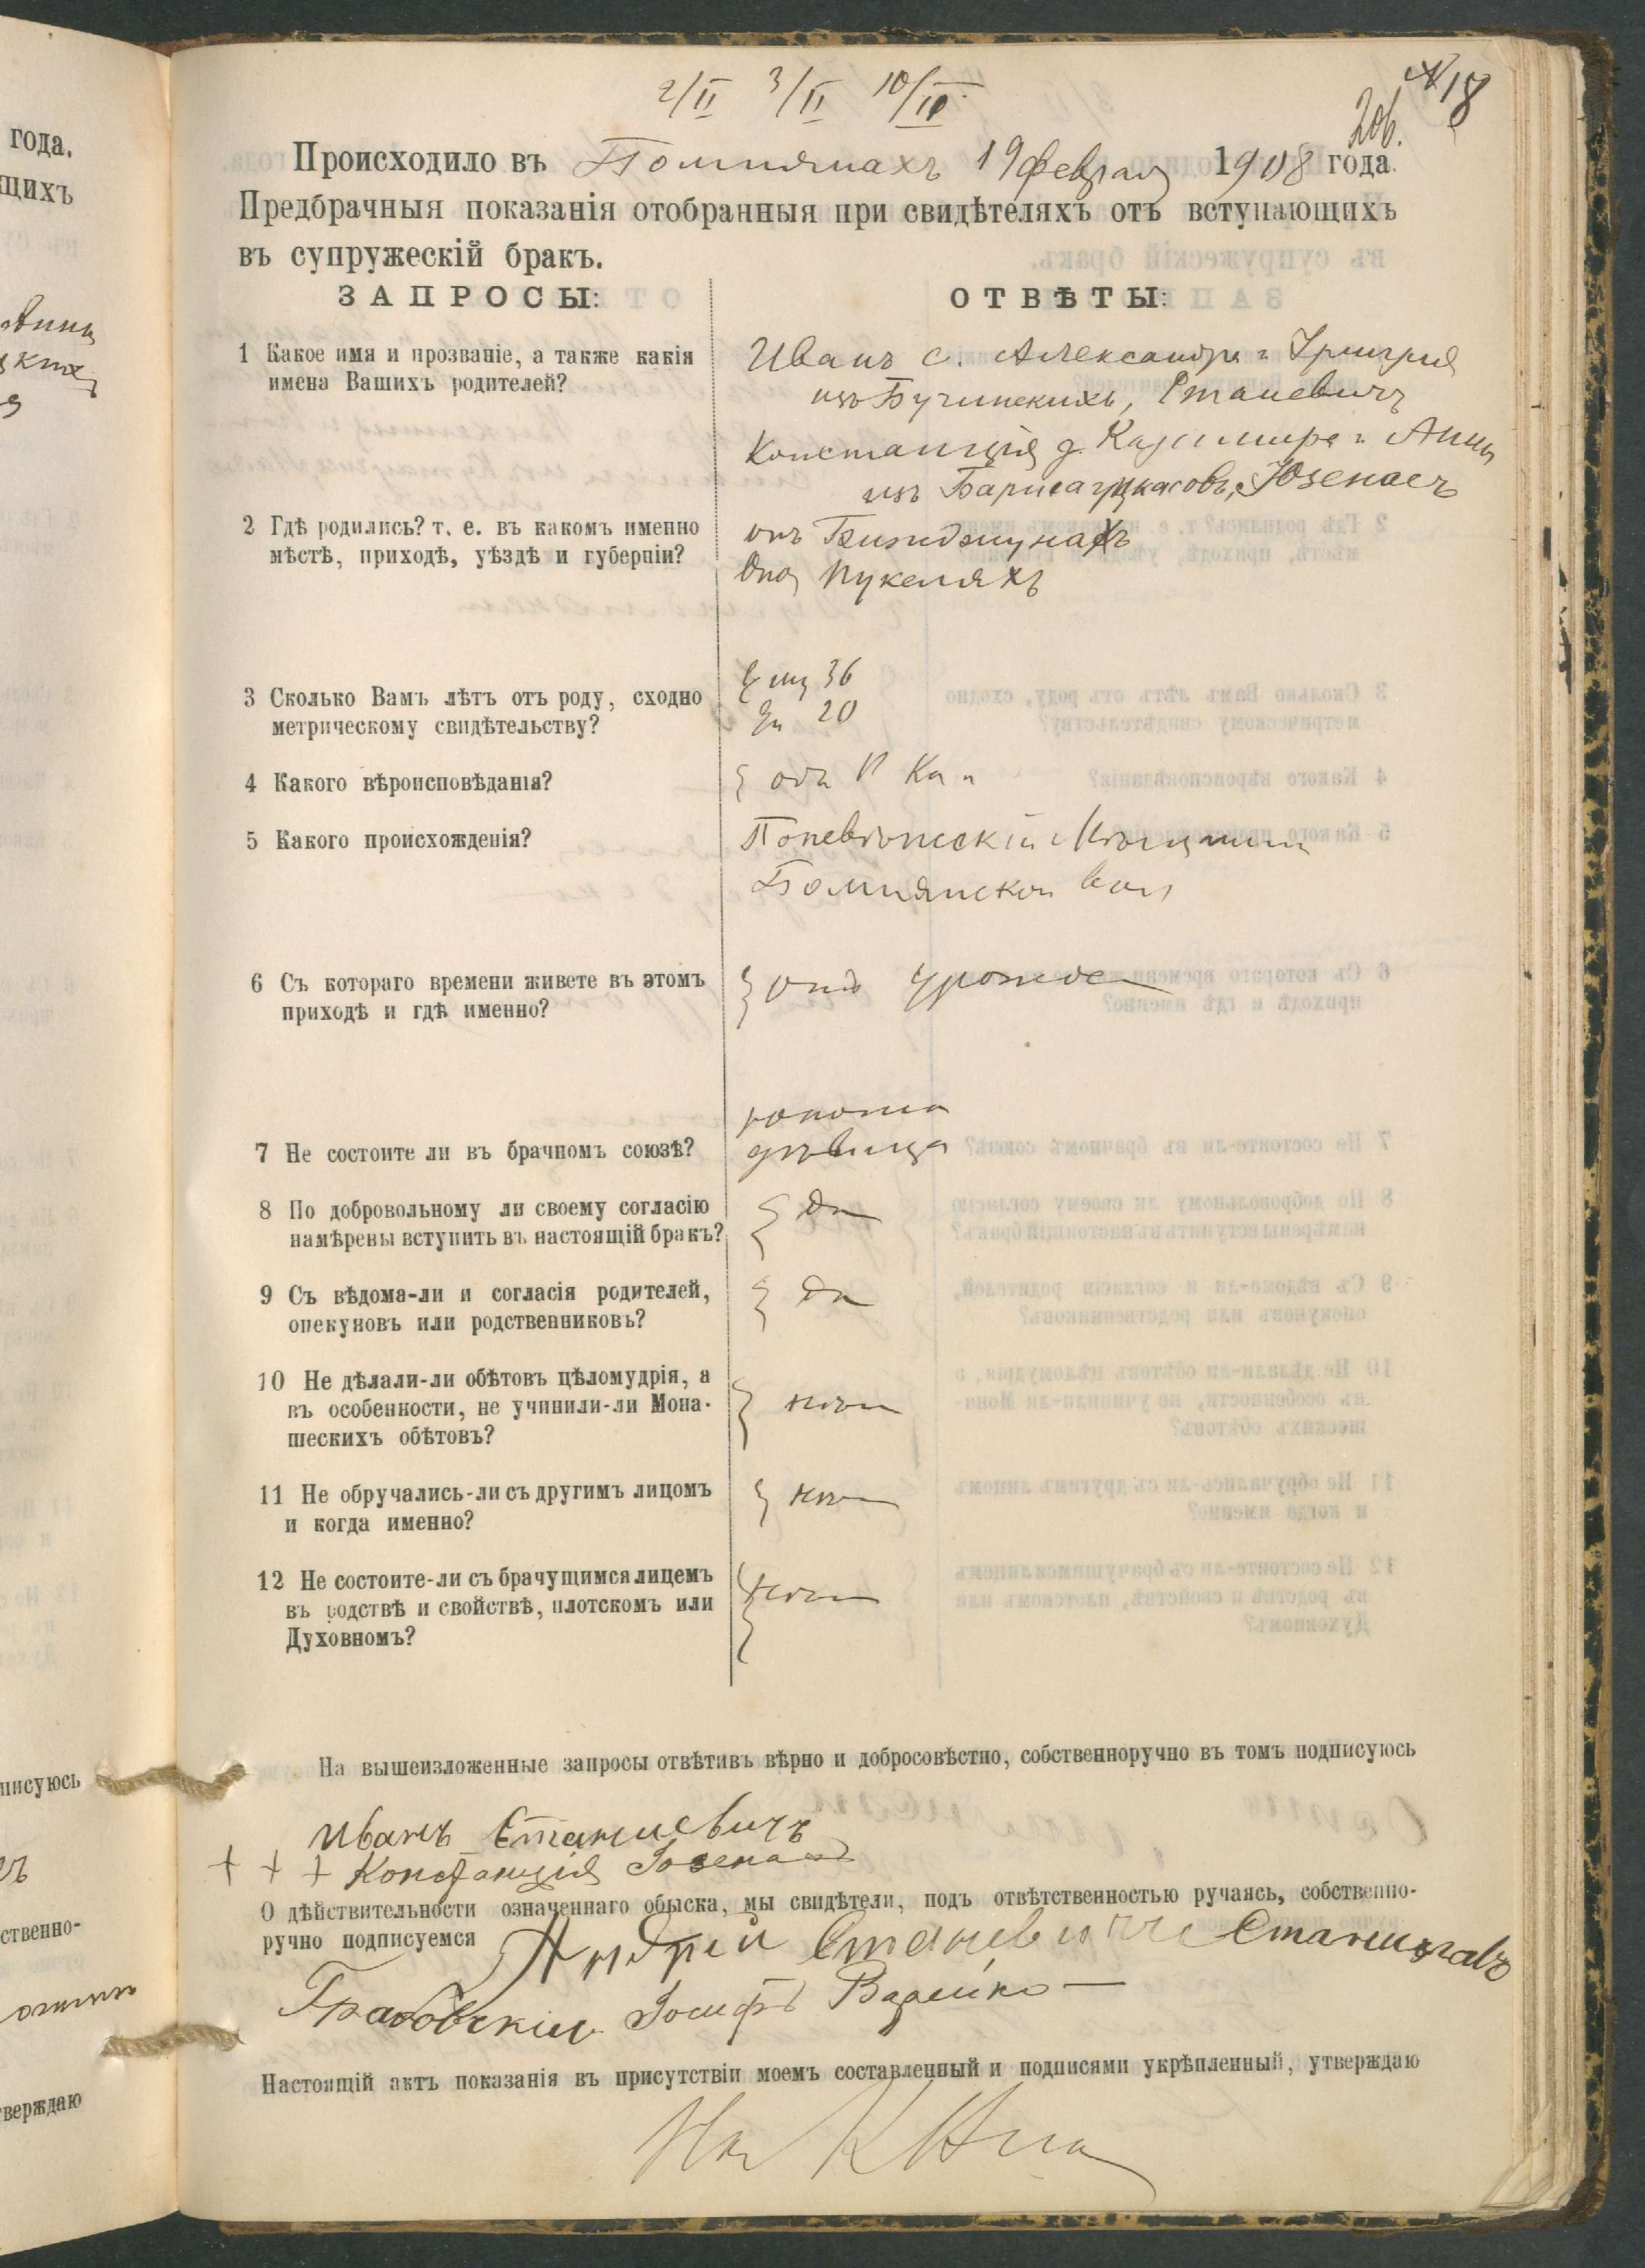 года.
щихъ
Анны
писуюсь
ственно-
тверждаю
2/II 3/II 10/II
№ 18
20б.
Происходило въ Помпянахъ 19 февраля 1908 года.
Предбрачныя показанія отобранныя при свидѣтеляхъ отъ вступающихъ
въ супружескій бракъ.
ЗАПРОСЫ:
ОТВѢТЫ:
1 Какое имя и прозваніе, а также какія
имена Вашихъ родителей?
Иванъ с. Александра и
изъ Бучинскихъ, Станевичъ
Констанція д. Казимира и Анны
изъ Юзенасъ
2 Гдѣ родились? т. е. въ какомъ именно
мѣстѣ, приходѣ, уѣздѣ и губерніи?
онъ
она Пукеляхъ
3 Сколько Вамъ лѣтъ отъ роду, сходно
метрическому свидѣтельству?
36
20
4 Какого вѣроисповѣданія?
оба Р Ка
5 Какого происхожденія?
Поневѣжскій Мѣщанин
Помпянской вол
6 Съ котораго времени живете въ этомъ
приходѣ и гдѣ именно?
отъ урожде
7 Не состоите ли въ брачномъ союзѣ?
холоста
дѣвица
8 По добровольному ли своему согласію
намѣрены вступить въ настоящій бракъ?
Да
9 Съ вѣдома-ли и согласія родителей,
опекуновъ или родственниковъ?
Да
10 Не дѣлали-ли обѣтовъ цѣломудрія, а
въ особенности, не учинили-ли Мона-
шескихъ обѣтовъ?
нѣт
11 Не обручались-ли съ другимъ лицомъ
и когда именно?
нѣт
12 Не состоите-ли съ брачущимся лицемъ
въ родствѣ и свойствѣ, плотскомъ или
Духовномъ?
нѣт
На вышеизложенные запросы отвѣтивъ вѣрно и добросовѣстно, собственноручно въ томъ подписуюсь
Иванъ Станиевичъ
+ + + Констанція Юзенасъ
О дѣйствительности означеннаго обыска, мы свидѣтели, подъ отвѣтственностью ручаясь, собственно-
ручно подписуемся Андрей Станевичъ Станиславъ
Грабовскій Іосифъ
Настоящій актъ показанія въ присутствіи моемъ составленный и подписями укрѣпленный, утверждаю